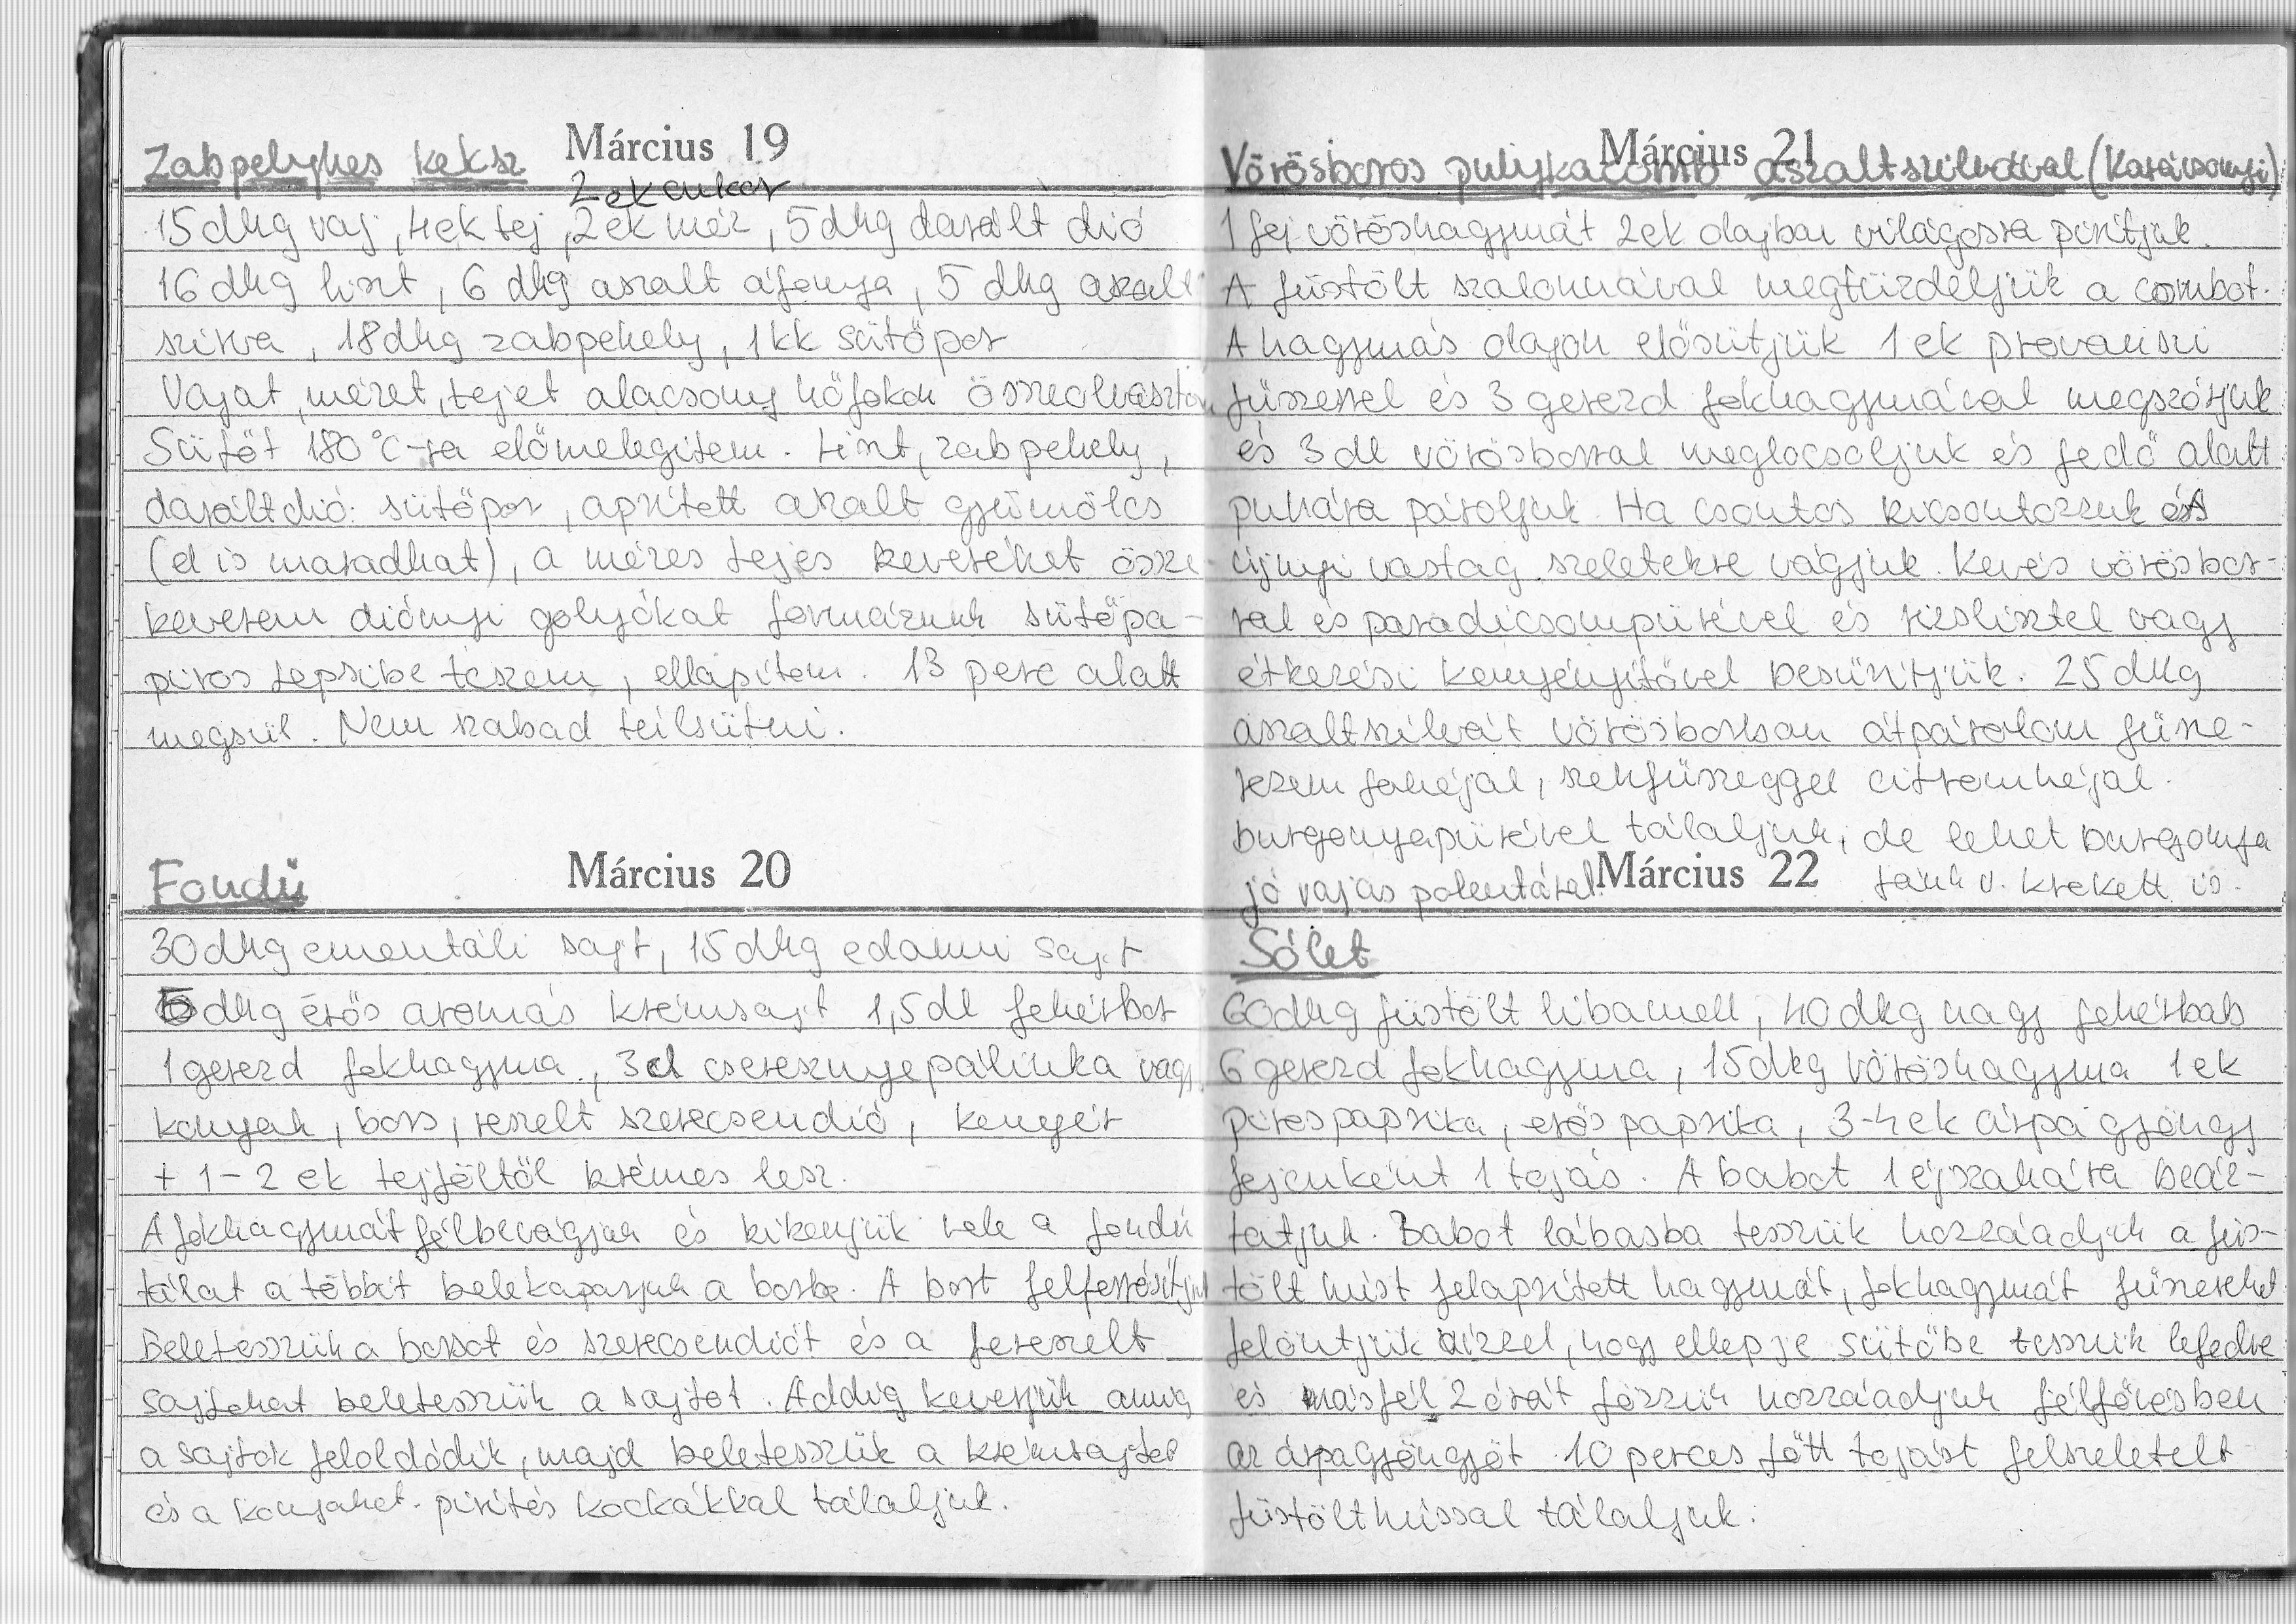 Március 19
Zabpelyhes keksz
2 ek cukor
15 dkg vaj, 4 ek tej, 2 ek méz, 5 dkg darált dió
16 dkg liszt, 6 dkg aszalt áfonya, 5 dkg aszalt
szilva, 18 dkg zabpehely, 1 kk sütőpor
Vajat, mézet, tejet alacsony hőfokon összeolvasztom
Sütőt 180 °C-ra előmelegítem. Liszt, zabpehely,
daráltdió: sütőpor, aprított aszalt gyümölcs
(el is maradhat), a mézes tejes keveréket össze-
keverem diónyi golyókat formázunk sütőpa-
piros tepsibe teszem, ellapítom. 13 perc alatt
megsül. Nem szabad túlsütni.
Március 20
Fondü
30 dkg ementáli sajt, 15 dkg edami sajt
5 dkg érős aromás krémsajt 1,5 dl fehérbor
1 gerezd fokhagyma, 3 cl cseresznyepálinka vagy
konyak, bors, reszelt szerecsendió, kenyér
+ 1-2 ek tejföltől krémes lesz.
A fokhagymát félbevágjuk és kikenjük vele a fondü
tálat a többit belekaparjuk a borba. A bort felforrósítjuk
Beletesszük a borsot és szerecsendiót és a lereszelt
sajtokat beletesszük a sajtot. Addig keverjük amíg
a sajtok feloldódik, majd beletesszük a krémsajtot
és a konyakot. pirítós kockákkal tálaljuk.
Március 21
Vörösboros pulykacomb aszaltszilvával (Karácsonyi)
1 fej vöröshagymát 2 ek olajban világosra pirítjuk.
A füstölt szalonnával megtűzdeljük a combot.
A hagymás olajon elősütjük 1 ek provanszi
fűszerrel és 3 gerezd fokhagymával megszórjuk
és 3 dl vörösborral meglocsoljuk és fedő alatt
puhára pároljuk. Ha csontos kicsontozzuk és
újnyi vastag szeletekre vágjuk. Kevés vörösbor-
ral és paradicsompürével és rizsliszttel vagy
étkezési keményítővel besűrítjük. 25 dkg
aszaltszilvát vörösborban átpárolom fűsze-
rezem fahéjal, szekfűszeggel citromhéjal.
burgonyapürével tálaljuk, de lehet burgonya
fánk v. krekett is.
jó vajas polentával.
Március 22
Sólet
60 dkg füstölt libamell, 40 dkg nagy fehérbab
6 gerezd fokhagyma, 15 dkg vöröshagyma 1 ek
pirospaprika, erős paprika, 3-4 ek árpagyöngy
fejenként 1 tojás. A babot 1 éjszakára beáz-
tatjuk. Babot lábasba tesszük hozzáadjuk a füs-
tölt húst felaprított hagymát, fokhagymát fűszereket
felöntjük vízzel, hogy ellepje sütőbe tesszük lefedve
és másfél 2 órát főzzük hozzáadjuk félfövésben
az árpagyöngyöt. 10 perces főtt tojást felszeletelt
füstölthússal tálaljuk.